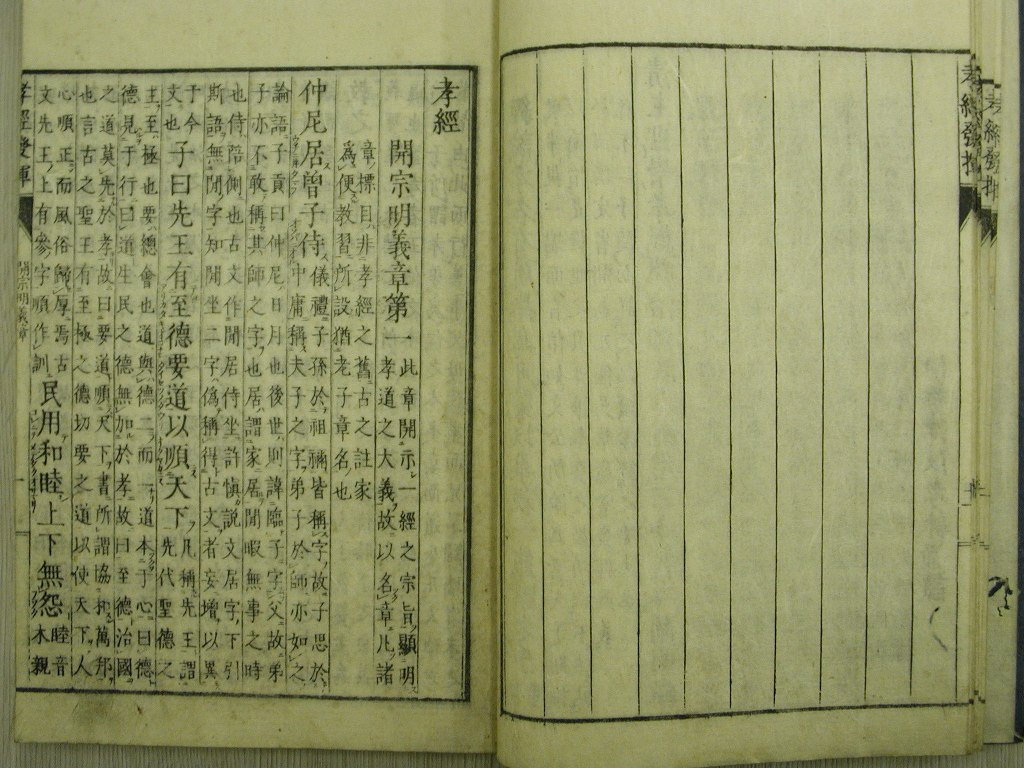 孝經發揮
孝經
開宗明義章第一
此章開示一經之宗旨顯明
孝道之大義故以名章凡諸
章標目非孝經之舊古之註家
爲便教習所設猶老子章名也
仲尼居曾子侍
儀禮子孫於祖禰皆稱字故子思於
中庸稱夫子之字弟子於師亦如之
論語子貢曰仲尼日月也後世則諱臨子字父故弟
子亦不敢稱其師之字也居謂家居閒暇無事之時
也侍陪側也古文作閒居侍坐許愼說文居字下引
斯語無閒字知閒坐二字僞稱得古文者妄增以異
于今
文也
子曰先王有至德要道以順天下
凡稱先王謂
先代聖德之
主至極也要總會也道與德二而一道本于心曰德
德見于行曰道生民之德無加於孝故曰至德治國
之道莫先於孝故曰要道順天下書所謂協和萬邦
也言古之聖王有至極之德切要之道以使天下人
心順正而風俗歸厚焉古
文先王上有參字順作訓
民用和睦上下無怨
睦音
木親
開宗明義章